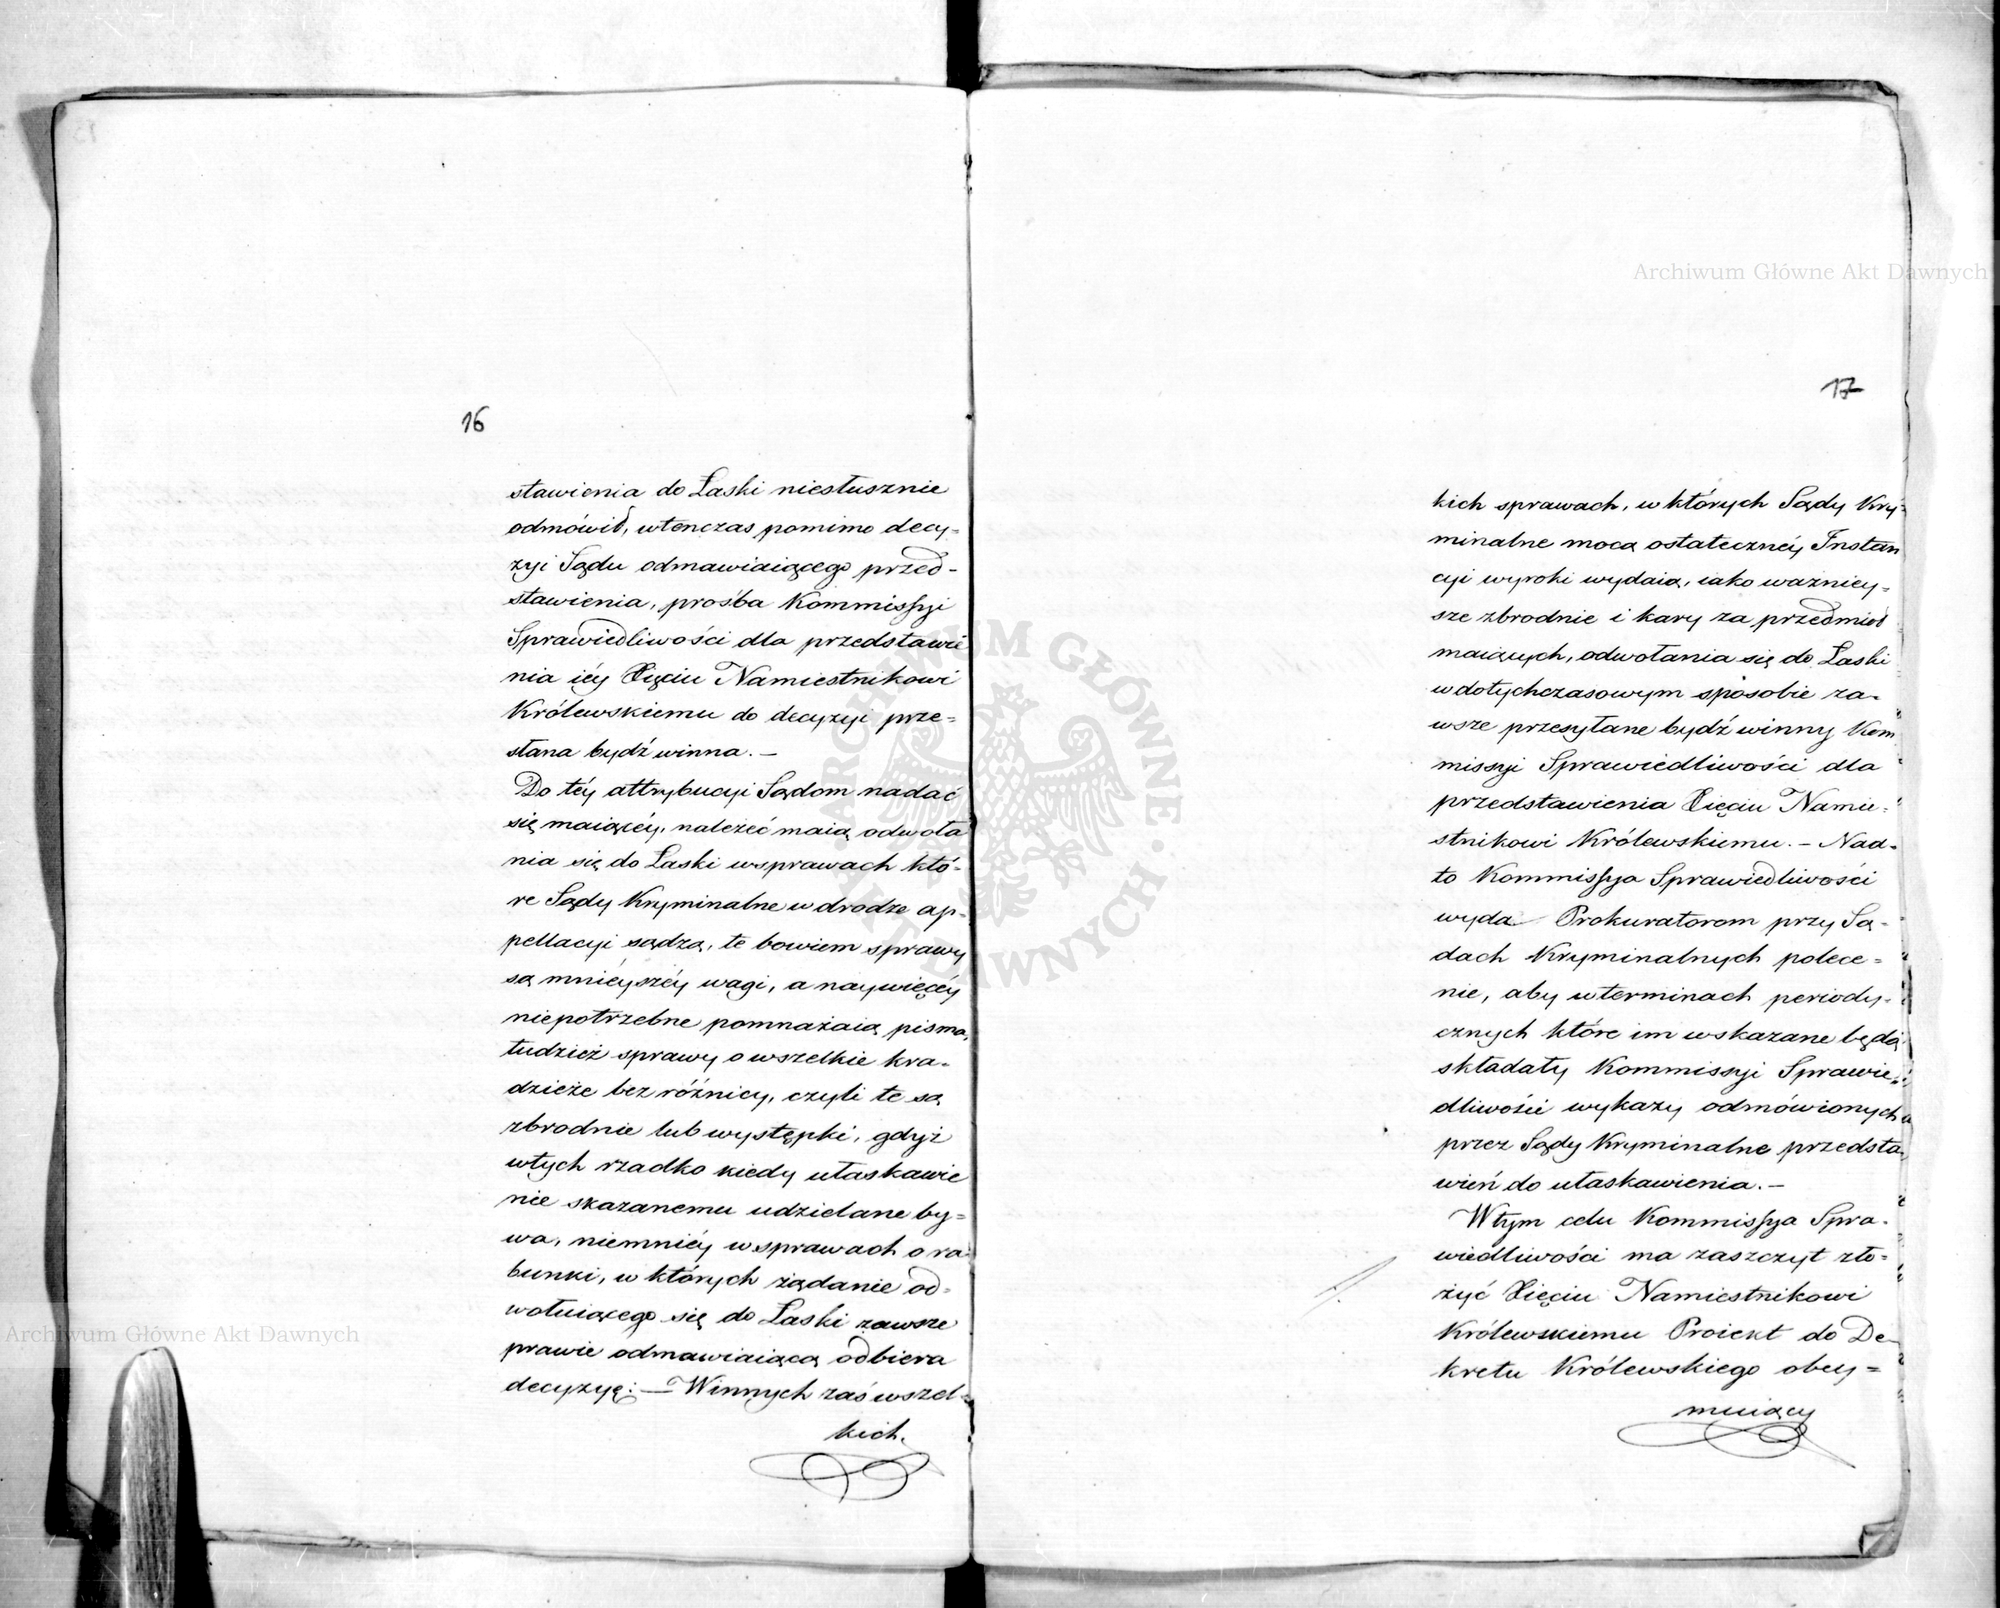 16
stawienia do Łaski niesłusznie
odmówił, wtenczas pomimo decy-
zyi Sądu odmawiaiącego przed-
stawienia, prośba Kommissyi
Sprawiedliwości dla przedstawie
nia iéy Xięciu Namiestnikowi
Królewskiemu do decyzyi prze-
słana bydź winna. –
Do téy attrybucyi Sądom nadać
się maiącéy, należeć maią odwoła
nia się do Łaski w sprawach któ-
re Sądy Kryminalne w drodze ap-
pellacyi sądzą, te bowiem sprawy
są mniéyszéy wagi, a naywięcéy
niepotrzebne pomnażaią pisma,
tudzież sprawy o wszelkie kra-
dzieże bez różnicy, czyli te są
zbrodnie lub występki, gdyż
w tych rzadko kiedy ułaskawie
nie skazanemu udzielane by-
wa, niemniéy w sprawach o ra
bunki, w których żądanie od-
wołuiącego się do Łaski zawsze
prawie odmawiaiącą odbiera
decyzyę: – Winnych zaś wszel-
kich.
17
kich sprawach, w których Sądy Kry-
minalne mocą ostatecznéy Instan
cyi wyroki wydaią, iako ważniey-
sze zbrodnie i kary za przedmiot
maiących, odwołania się do Łaski
w dotychczasowym sposobie za-
wsze przesyłane bydź winny Kom
missyi Sprawiedliwości dla
przedstawienia Xięciu Namie-
stnikowi Królewskiemu. – Nad-
to Kommissya Sprawiedliwości
wyda Prokuratorom przy Są-
dach Kryminalnych polece-
nie, aby w terminach periody-
cznych które im wskazane będą
składały Kommissyi Sprawie-
dliwości wykazy odmówionych
przez Sądy Kryminalne przedsta
wień do ułaskawienia. –
W tym celu Kommissya Spra-
wiedliwości ma zaszczyt zło-
żyć Xięciu Namiestnikowi
Królewskiemu Proiekt do De-
kretu Królewskiego obey-
muiący
ARCHIWUM GŁÓWNE · AKT DAWNYCH ·
Archiwum Główne Akt Dawnych
Archiwum Główne Akt Dawnych